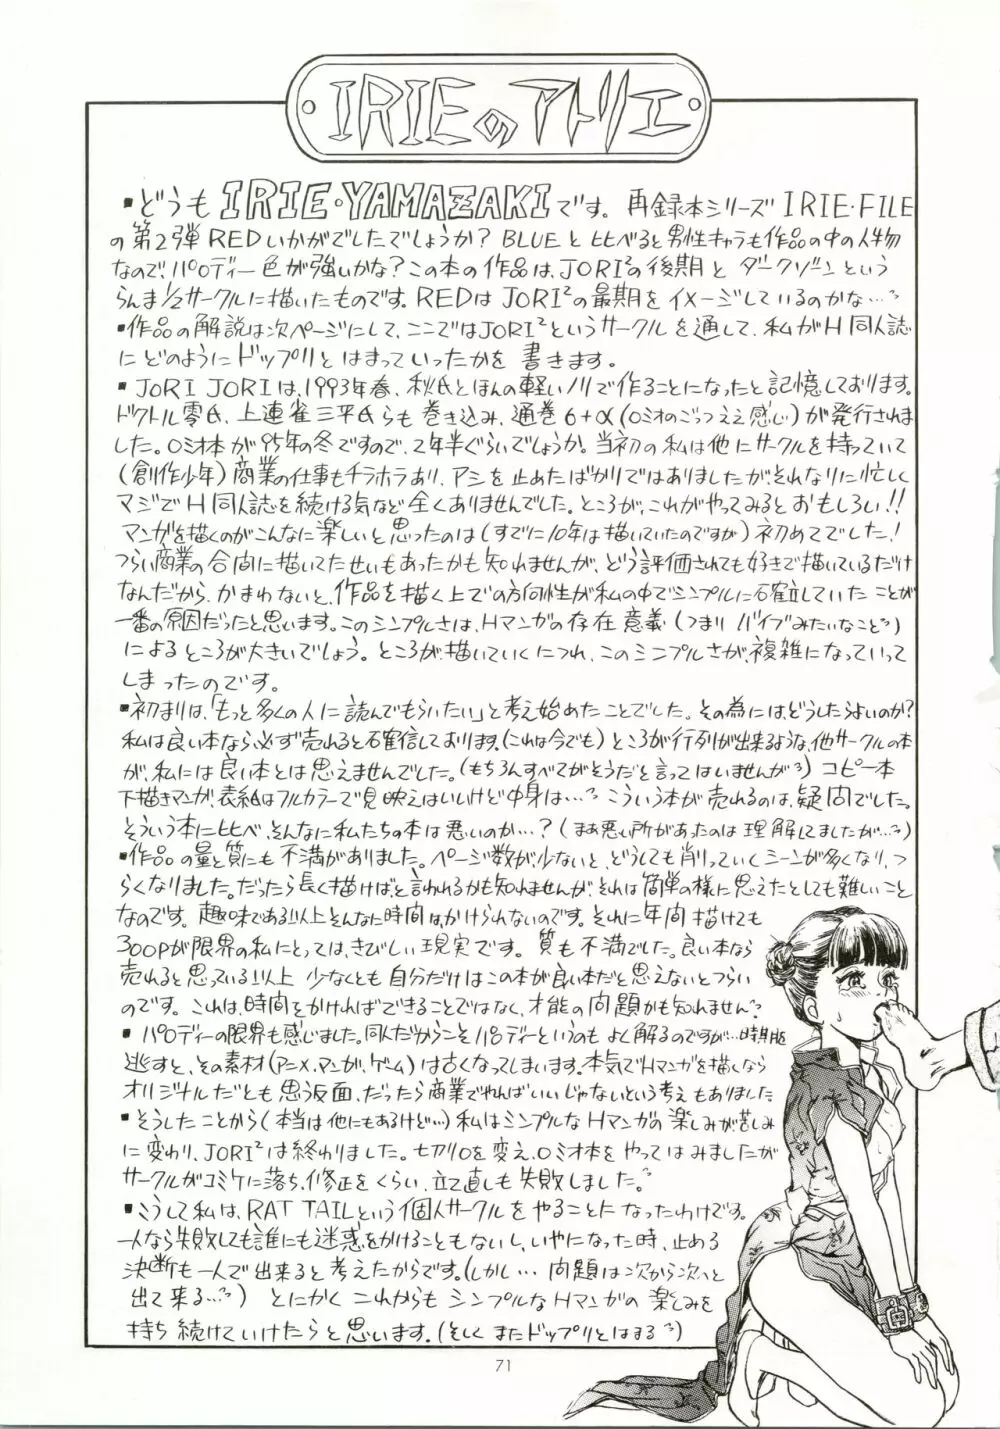 IRIEのアトリエ
▪どうも IRIE・YAMAZAKIです。再録本シリーズ IRIE・FILE
の第2弾 REDいかがでしたでしょうか? BLUEと比べると男性キャラも作品の中の人物
なので、パロディー色が強いかな?この本の作品は、JORI²の後期と ダークゾーンという
らんま½サークルに描いたものです。REDは JORI²の最期をイメージしているのかな…
▪作品の解説は次ページにして、ここではJORI²というサークルを通して、私がH同人誌
にどのようにドップリとはまっていったかを 書きます。
▪JORI JORIは、1993年春、秋氏とほんの軽いノリで作ることになったと記憶しております。
ドクトル零氏、上連雀三平氏らも巻き込み、通巻6+α(ロミオのごっつええ感じ)が発行されま
した。ロミオ本が95年の冬ですので、2年半ぐらいでしょうか。当初の私は他にサークルを持っていて
(創作少年)商業の仕事もチラホラあり、アシを止めたばかりではありましたが、それなりに忙しく
マジでH同人誌を続ける気など全くありませんでした。ところが、これがやってみるとおもしろい!!
マンガを描くのがこんなに楽しいと思ったのは(すでに10年は描いていたのですが)初めてでした!
つらい商業の合間に描いてたせいもあったかも知れませんが、どう評価されても好きで描いているだけ
なんだから、かまわないと、作品を描く上での方向性が私の中でシンプルに確立していたことが
一番の原因だったと思います。このシンプルさは、Hマンガの存在意義(つまりバイブみたいなこと)
によるところが大きいでしょう。ところが、描いていくにつれ、このシンプルさが、複雑になっていって
しまったのです。
▪初まりは、「もっと多くの人に読んでもらいたい」と考え始めたことでした。その為には、どうしたらよいのか?
私は良い本なら必ず売れると確信しております。(これは今でも)ところが行列が出来るような、他サークルの本
が、私には良い本とは思えませんでした。(もちろんすべてがそうだと言ってはいませんが)コピー本
下描きマンガ、表紙はフルカラーで見映えはいいけど中身は… こういう本が売れるのは、疑問でした。
そういう本に比べ、そんなに私たちの本は悪いのか…?(まあ悪い所があったのは理解してましたが…)
▪作品の量と質にも不満がありました。ページ数が少ないと、どうしても削っていくシーンが多くなり、つ
らくなりました。だったら長く描けば、と言われるかも知れませんが、それは簡単の様に思えたとしても難しいこと
なのです。趣味である以上そんなに時間は、かけられないのです。それに年間描けても
300Pが限界の私にとっては、きびしい現実です。質も不満でした。良い本なら
売れると思っている以上 少なくとも自分だけはこの本が良い本だと思えないとつらい
のです。これは、時間をかければできることではなく、才能の問題かも知れません?
▪パロディーの限界も感じました。同人だからこそパロディーというのもよく解るのですが…時期
逃すと、その素材(アニメ、マンガ、ゲーム)は古くなってしまいます。本気でHマンガを描くなら
オリジナルだとも思う反面、だったら商業でやればいいじゃないという考えもありました
▪そうしたことから(本当は他にもあるけど…)私はシンプルなHマンガの楽しみが苦しみ
に変わり、JORI²は終わりました。七刀りロを変え、ロミオ本をやってはみましたが
サークルがコミケに落ち、修正をくらい、立て直しも失敗しました。
▪こうして私は、RAT TAILという個人サークルをやることになったわけです。
一人なら失敗しても誰にも迷惑をかけることもないし、いやになった時、止める
決断も一人で出来ると考えたからです。(しかし… 問題は次から次へと
出て来る…)とにかくこれからもシンプルなHマンガの楽しみを
持ち続けていけたらと思います。(そしてまたドップリとはまる)
71